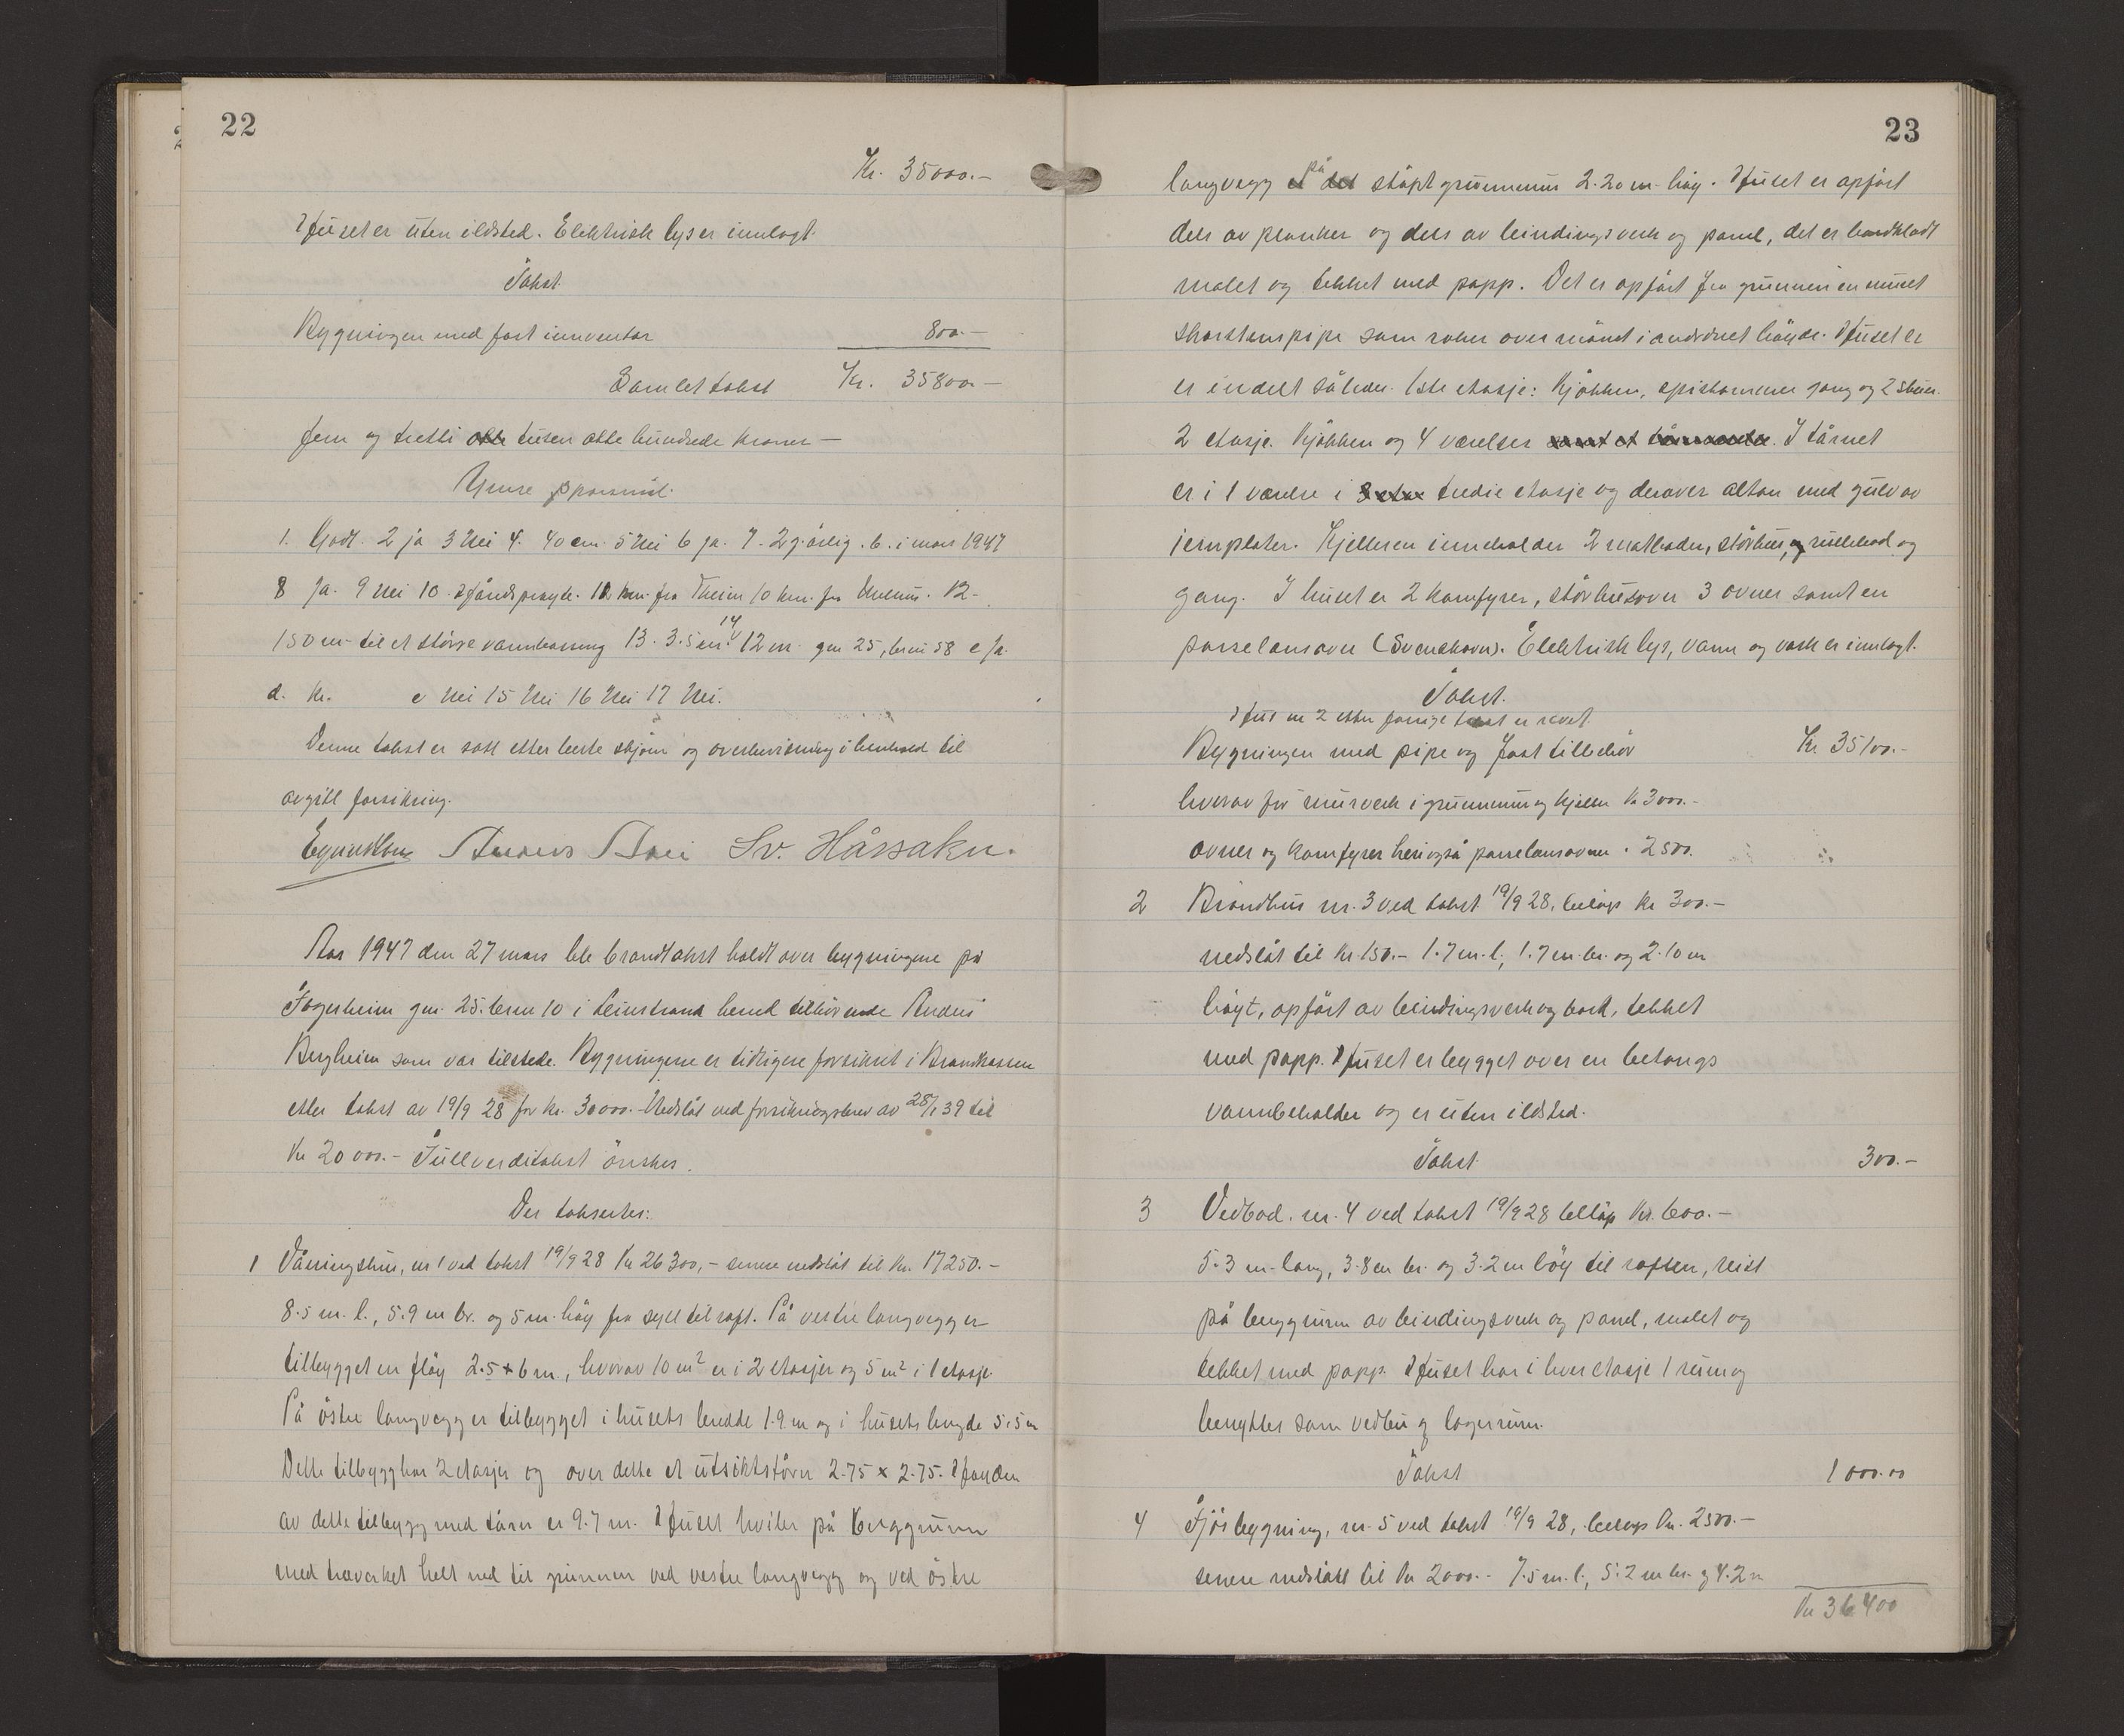 22
Kr. 35000.-
Huset er uten ildsted. Elektrisk lys er innlagt.
Takst
Bygningen med fast innventar 800.-
Samlet takst Kr. 35800.-
fem og tretti tusen otte hundrede kroner -
1. Godt. 2 ja 3 Nei 4. 40 cm. 5 Nei 6 Ja. 7. 2 g. årlig. b. i mars 1947
8 Ja. 9 Nei 10. Håndsprøyte. 11 km. fra Theim 10 km. fra 12-
150 m til et större vannbasseng 13. 3.5 m. 14 12 m. gnr 25, brnr 58 c Ja.
d. Kr. e Nei 15 Nei 16 Nei 17 Nei.
Denne takst er satt etter beste skjönn og overbevisning i henhold til
avgitt forsikring.
Sv. Håssaker.
Aar 1947 den 27 mars ble brandtakst holdt over bygningene på
Fagerheim gnr. 25. brnr 10 i Leinstrand herred tilhörende Anders
Bergheim som var tilstede. Bygningene er tidligere forsikret i Brandkassen
etter takst av 19/9 28 for kr. 30000.- Nedslåt ved forsikringsbrev av 28/1 39 til
Kr 20 000.- Fullverditakst önskes.
Der takseres:
1 Våningshus, nr 1 ved takst 19/9 28 Kr 26 300,- senere nedslåt til Kr. 17250.-
8.5 m. l., 5.9 m br. og 5 m. höy fra syll til raft. På vestre langvegg er
tilbygget en flöy 2.5 x 6 m., hvorav 10 m² er i 2 etasjer og 5 m² i 1 etasje.
På östre langvegg er tilbygget i husets bredde 1.9 m og i husets lengde 5.5 m
Dette tilbygg har 2 etasjer og over dette et utsiktstårn 2.75 x 2.75. Höyden
av dette tilbygg med tårn er 9.7 m. Huset hviler på berggrunn
med treverket helt ned til grunnen ved vestre langvegg og ved östre
23
langvegg på stöpt grunnmur 2.20 m. höy. Huset er opfört
dels av planker og dels av bindingsverk og panel, det er bordkledt
malet og tekket med papp. Det er opfört fra grunnen en muret
skorstenspipe som raker over mönet i andordnet höyde. Huset er
er inndelt således. 1ste etasje: Kjökken, spiskammer gang og 2 stuer.
2 etasje. Kjökken og 4 værelser samt et. I tårnet
er i 1 værelse i tredie etasje og derover altan med gulv av
jernplater. Kjelleren inneholder 2 matboder, störhus, og rullebod og
gang. I huset er 2 komfyrer, störhusovn 3 ovner samt en
porselansovn (Svenskovn). Elektrisk lys, vann og vask er innlagt.
Takst.
Hus nr 2 etter forrige takst er revet
Bygningen med pipe og fast tilbehör Kr 35100.-
hvorav for murverk i grunnmur og kjeller Kr 3000.-
ovner og komfyrer heri også porselansovnen. 2500.
2 Bröndhus nr. 3 ved takst 19/9 28, belöp Kr 300.-
nedslåt til Kr. 150.- 1.7 m. l., 1.7 m. br. og 2.10 m
höyt, opfört av bindingsverk og bord, tekket
med papp. Huset er bygget over en betongs
vannbeholder og er uten ildsted.
Takst 300.-
3 Vedbod. nr. 4 ved takst 19/9 28 belöp Kr. 600.-
5.3 m. lang, 3.8 m br. og 3.2 m höy til raften, reist
på berggrunn av bindingsverk og panel, malet og
tekket med papp. Huset har i hver etasje 1 rum og
benyttes som vedbu og lagerrum.
Takst 1 000.00
4 Fjösbygning, nr. 5 ved takst 19/9 28, belöp Kr. 2500.-
senere nedslått til Kr 2000.- 7.5 m. l., 5.2 m br. og 4.2 m
Kr 36400